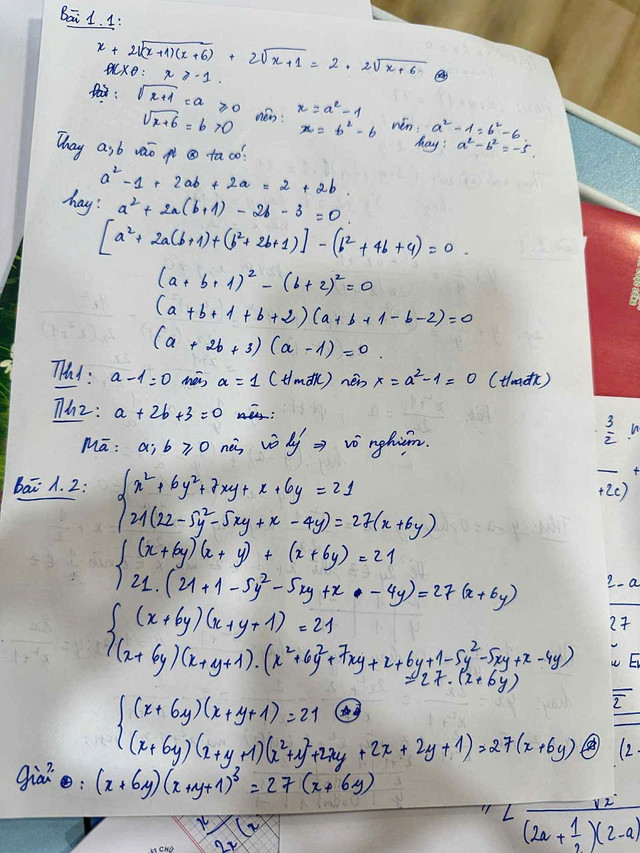 Bài 1.1:
x + 2√(x+1)(x+6) + 2√x+1 = 2 + 2√x+6 ⊛
ĐKXĐ: x ≥ -1.
Đặt: √x+1 = a ≥ 0 nên: x = a² - 1 nên: a² - 1 = b² - 6
√x+6 = b > 0 x = b² - 6 hay: a² - b² = -5.
Thay a, b vào pt ⊛ ta có:
a² - 1 + 2ab + 2a = 2 + 2b.
hay: a² + 2a(b+1) - 2b - 3 = 0.
[a² + 2a(b+1) + (b² + 2b + 1)] - (b² + 4b + 4) = 0.
(a + b + 1)² - (b + 2)² = 0
(a + b + 1 + b + 2)(a + b + 1 - b - 2) = 0
(a + 2b + 3)(a - 1) = 0.
Th1: a - 1 = 0 nên a = 1 (tmđk) nên x = a² - 1 = 0 (tmđk)
Th2: a + 2b + 3 = 0 nên:
Mà: a, b ≥ 0 nên vô lý ⇒ vô nghiệm.
Bài 1.2: { x² + 6y² + 7xy + x + 6y = 21
21(22 - 5y² - 5xy + x - 4y) = 27(x + 6y)
{ (x + 6y)(x + y) + (x + 6y) = 21
21.(21 + 1 - 5y² - 5xy + x - 4y) = 27(x + 6y)
{ (x + 6y)(x + y + 1) = 21
(x + 6y)(x + y + 1).(x² + 6y² + 7xy + x + 6y + 1 - 5y² - 5xy + x - 4y)
= 27.(x + 6y)
{ (x + 6y)(x + y + 1) = 21
(x + 6y)(x + y + 1)(x² + y² + 2xy + 2x + 2y + 1) = 27(x + 6y) ⊛
Giải: (x + 6y)(x + y + 1)³ = 27(x + 6y)
3/2
+ 2c)
2 - a
27
(2 -
√2
(2a + 1/2)(2 - a)